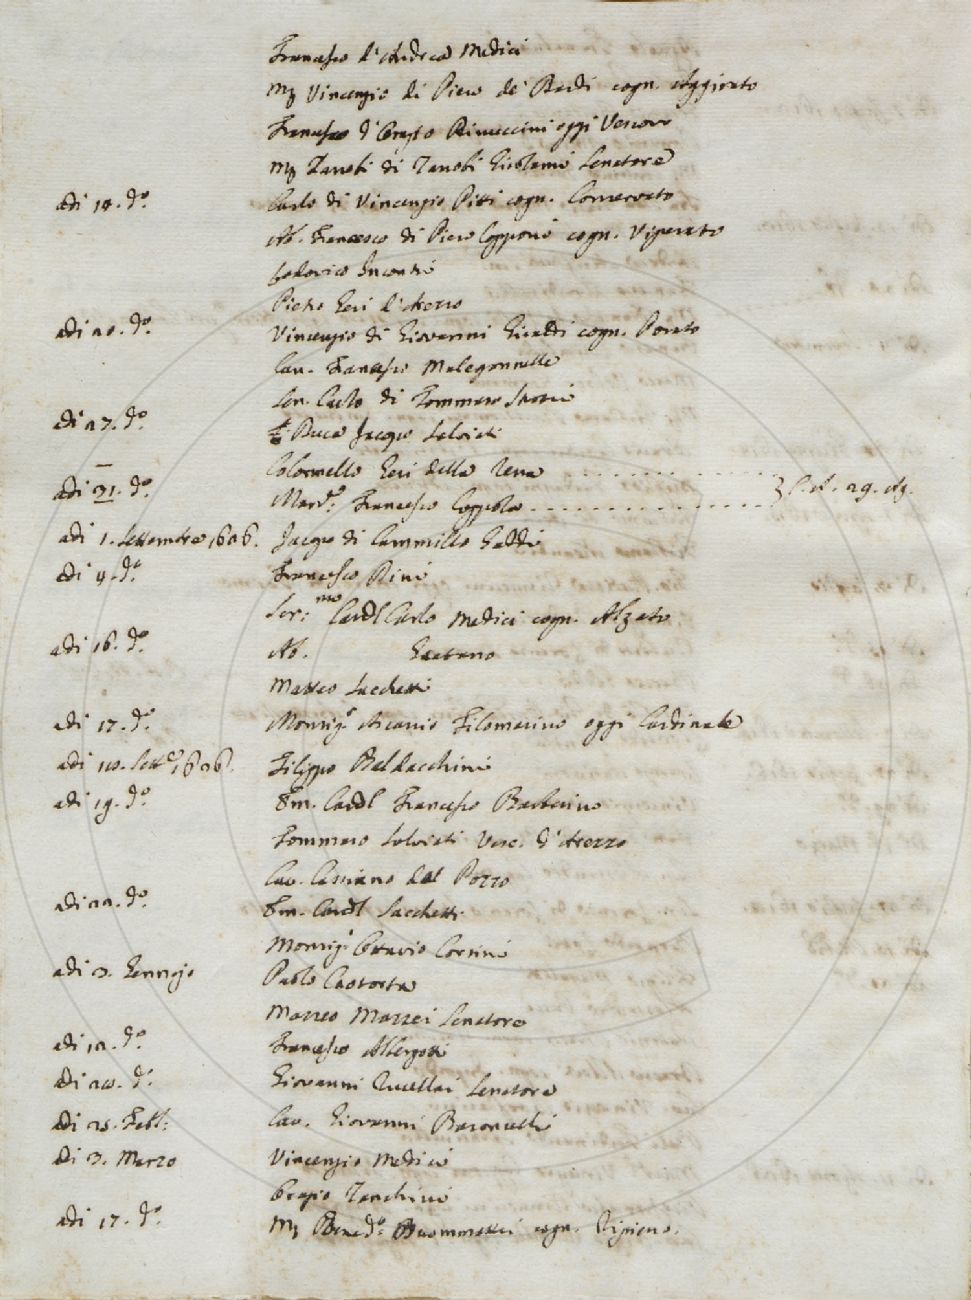 Francesco d'Andrea Medici
Mʒ Vincenzio di Piero de' Bardi cogn. Aggirato
Francesco d'Orazio Rinuccini oggi Vescovo
Mʒ Zanobi di Zanobi Girolami Senatore
adi 14. dº. Carlo di Vincenzio Pitti cogn. Conservato
Ab. Francesco di Piero Capponi cogn.
Lodovico Incontri
Pietro Geri d'Arezzo
adi 20. dº. Vincenzio di Giovanni Giraldi cogn. Porato
Cav. Francesco Malegonnelle
Sen. Carlo di Tommaso Strozzi
adi 27. dº. Duca Jacopo Salviati
Colonnello Geri della Rena
adi 31. dº. March.e Francesco Coppola 29. Ag.
adi 1. Settembre 1626. Jacopo di Cammillo Gaddi
adi 4. dº. Francesco Rini
Ser:mo Cardl Carlo Medici cogn. Alzato
adi 16. dº. Ab. Gaetano
Matteo Sacchetti
adi 17. dº. Monsig.r Ascanio Filomarino oggi Cardinale
adi 18. Sett.e 1626. Filippo Baldacchini
adi 19. dº. Em. Cardl Francesco Barberino
Tommaso Salviati Vesc. d'Arezzo
Cav. Cassiano dal Pozzo
adi 22. dº. Em. Cardl Sacchetti
Monsig.r Ottavio Corsini
adi 3. Gennajo Paolo Caotorta
Mazzeo Mazzei Senatore
adi 12. dº. Francesco Albergotti
adi 20. dº. Giovanni Rucellai Senatore
adi 25. Febb: Cav. Giovanni Baroncelli
adi 3. Marzo Vincenzio Medici
Orazio Zanchini
adi 17. dº. Mʒ Bened.º Buommattei cogn. Ripieno.